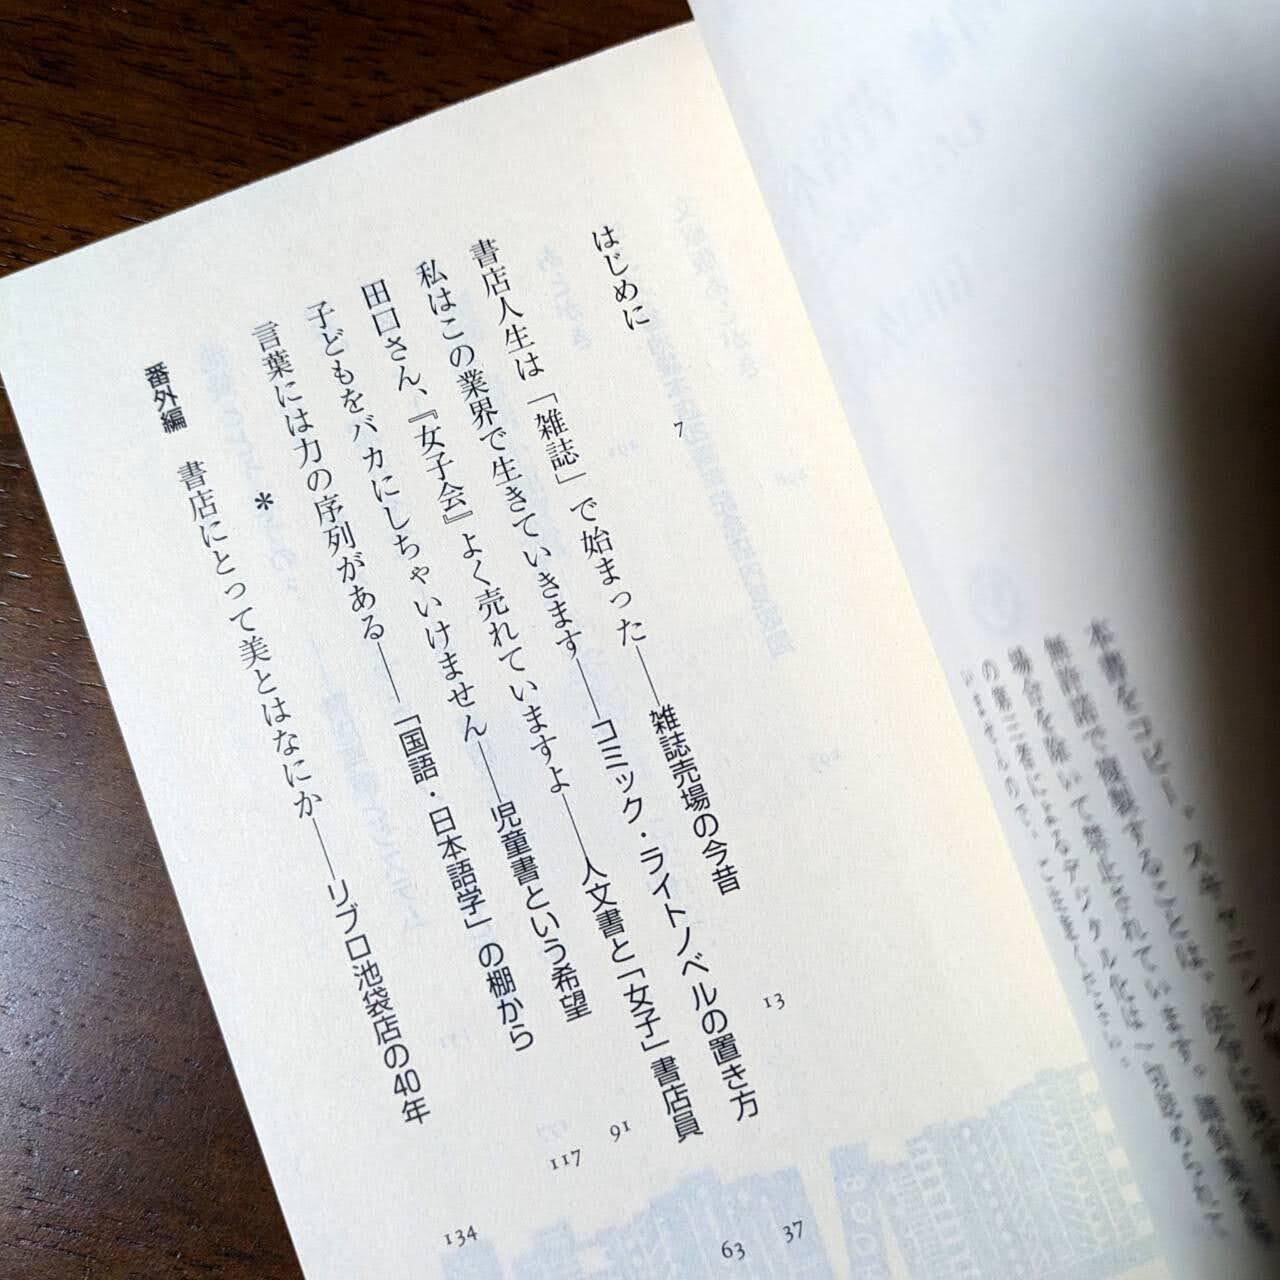 本書をコピー、スキャニング
無許諾で複製することは、法令に
場合を除いて禁止されています。請負業者等
の第三者によるデジタル化は一切認められて
いませんので、ご注意ください。
はじめに 7
書店人生は「雑誌」で始まった——雑誌売場の今昔 13
私はこの業界で生きていきます——コミック・ライトノベルの置き方 37
田口さん、『女子会』よく売れていますよ——人文書と「女子」書店員 63
子どもをバカにしちゃいけません——児童書という希望 91
言葉には力の序列がある——「国語・日本語学」の棚から 117
*
番外編 書店にとって美とはなにか——リブロ池袋店の40年 134